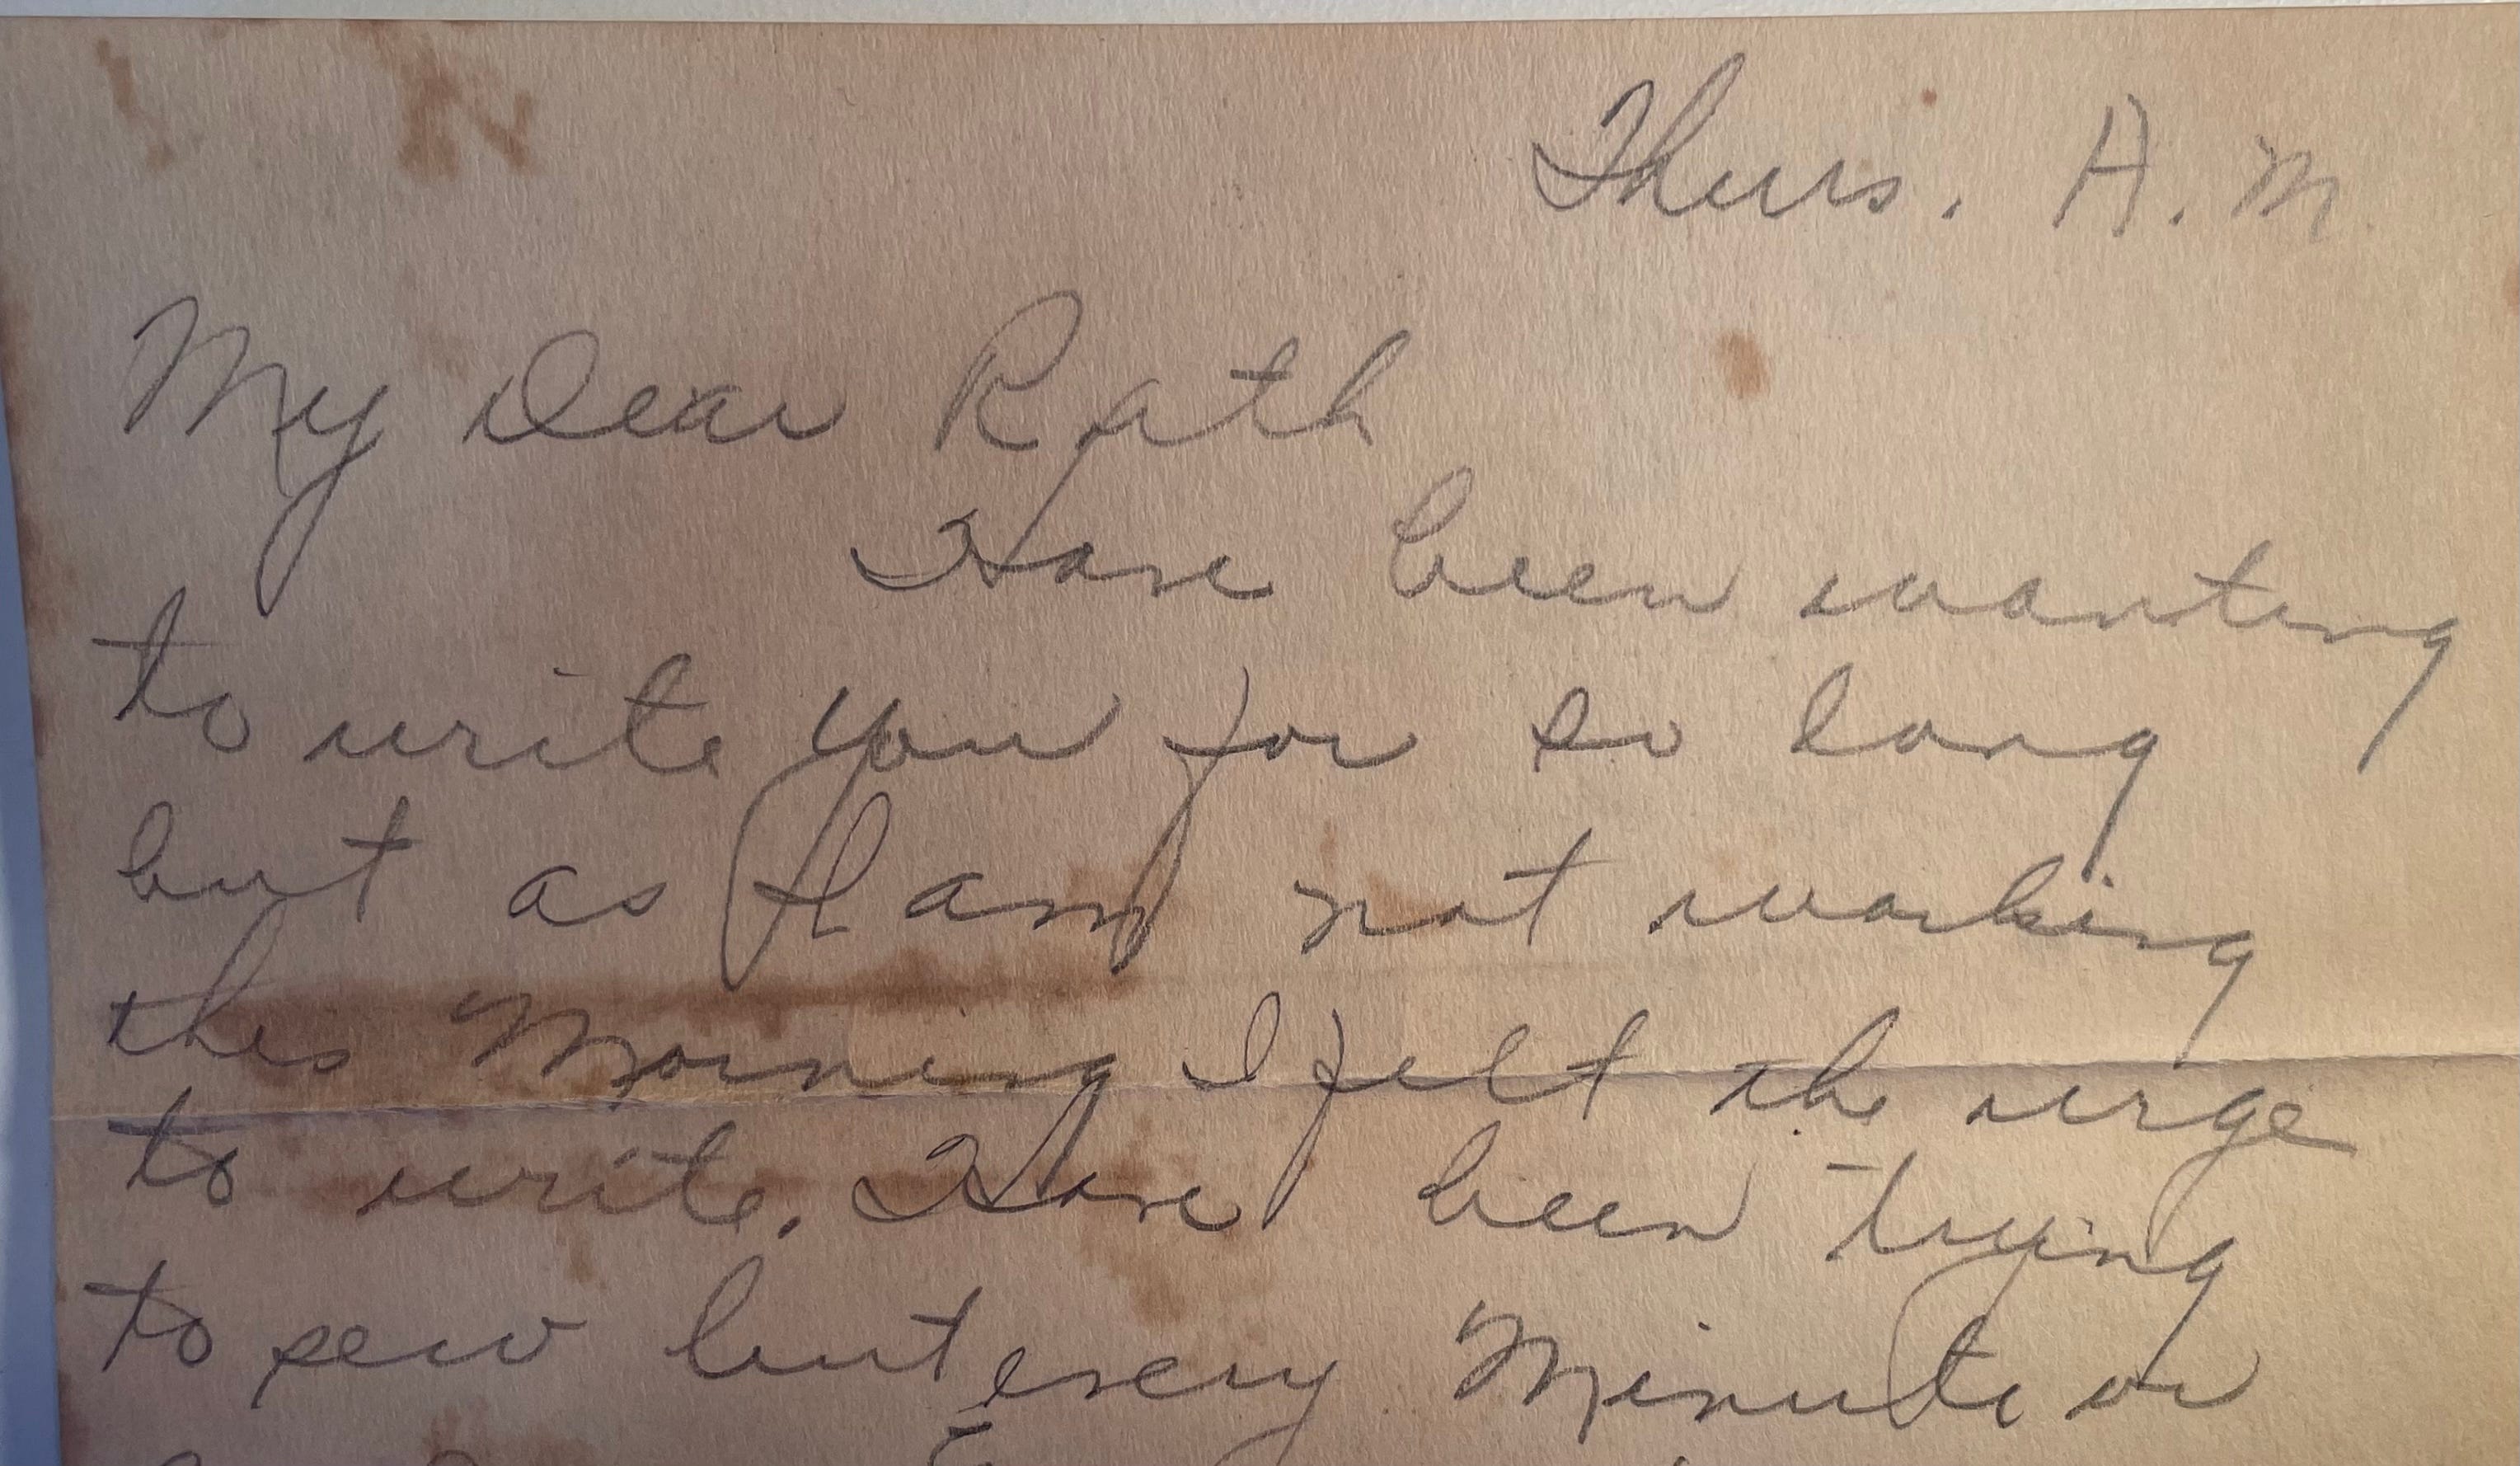 Thurs. A.M.
My Dear Rath
Have been wanting
to write you for so long
but as I am not working
this Morning I felt the urge
to write. Have been trying
to sew but every Minute or